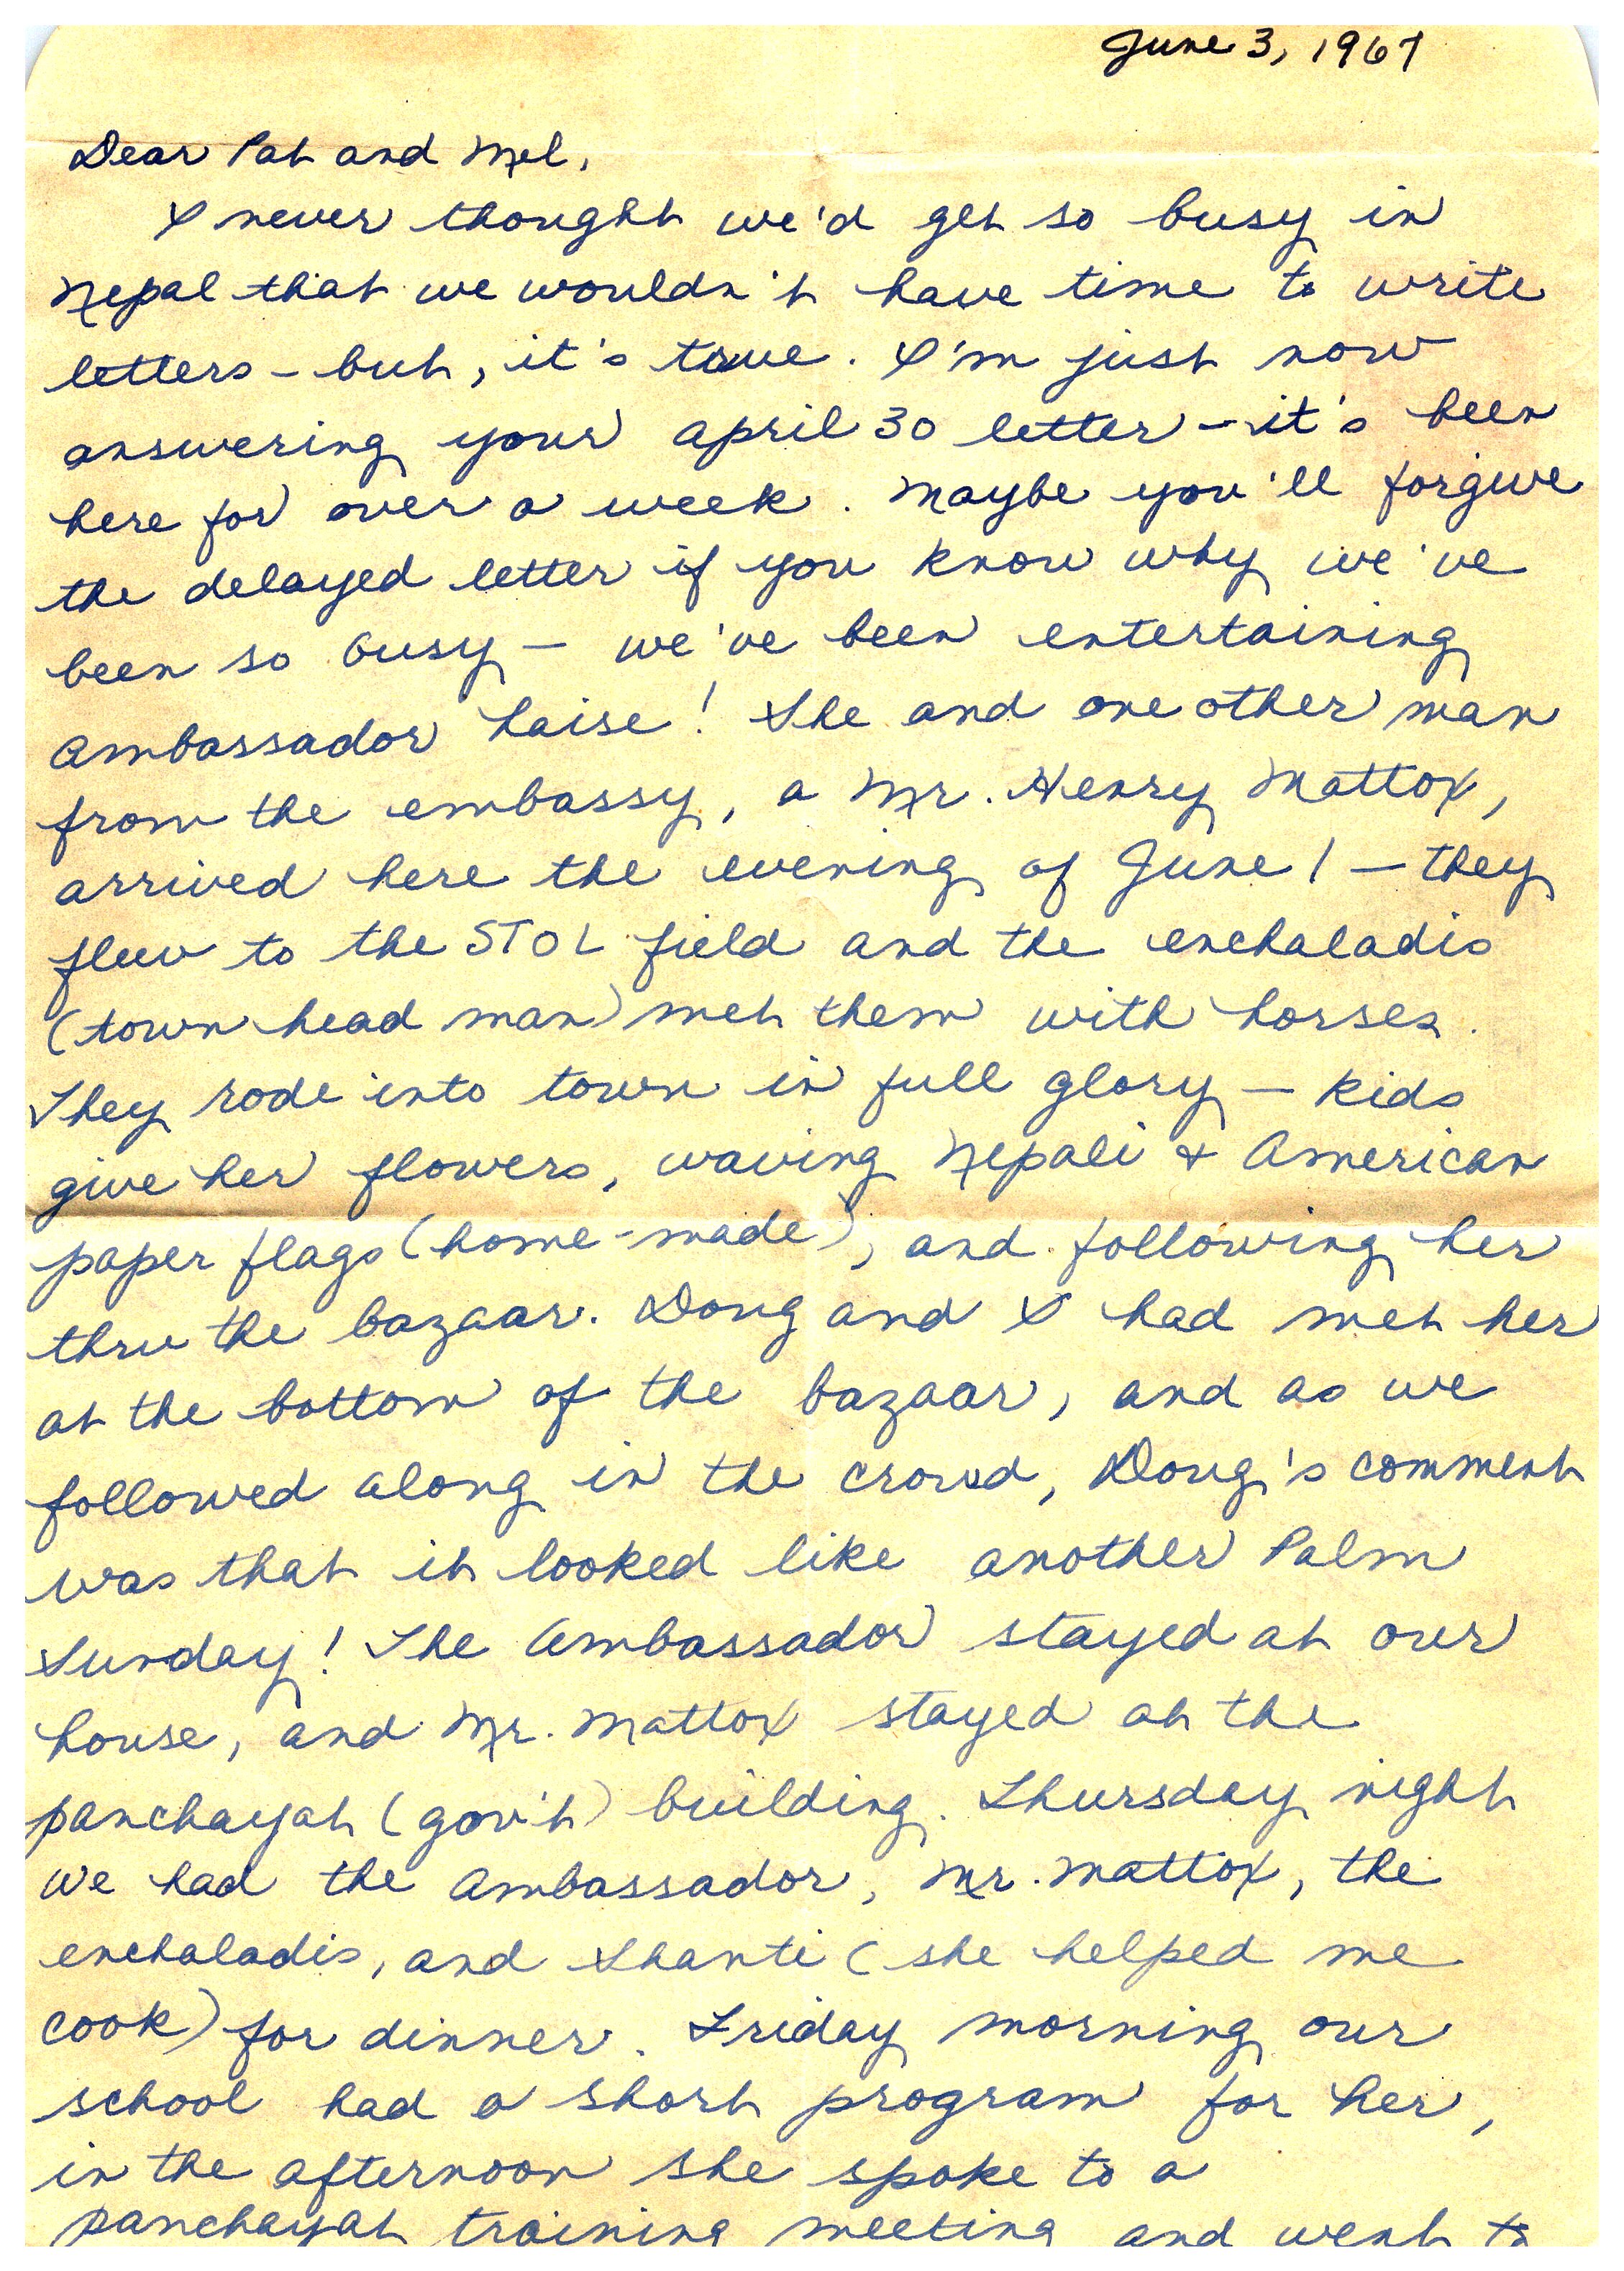 June 3, 1967
Dear Pat and Mel,
I never thought we'd get so busy in
Nepal that we wouldn't have time to write
letters - but, it's true. I'm just now
answering your April 30 letter - it's been
here for over a week. Maybe you'll forgive
the delayed letter if you know why we've
been so busy - we've been entertaining
Ambassador Laise! She and one other man
from the embassy, a Mr. Henry Mattox,
arrived here the evening of June 1 - they
flew to the STOL field and the enchaladis
(town head man) met them with horses.
They rode into town in full glory - kids
give her flowers, waving Nepali & American
paper flags (home-made), and following her
thru the bazaar. Doug and I had met her
at the bottom of the bazaar, and as we
followed along in the crowd, Doug's comment
was that it looked like another Palm
Sunday! The Ambassador stayed at our
house, and Mr. Mattox stayed at the
panchayat (gov't) building. Thursday night
we had the Ambassador, Mr. Mattox, the
enchaladis, and Shanti (she helped me
cook) for dinner. Friday morning our
school had a short program for her,
in the afternoon she spoke to a
panchayat training meeting and went to